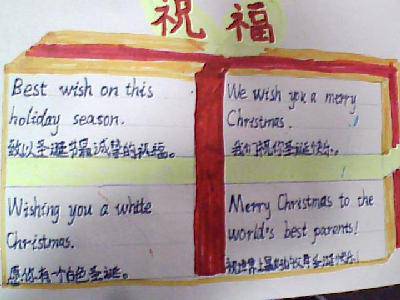 祝福
Best wish on this
holiday season.
致以圣诞节最诚挚的祝福。
We wish you a merry
Christmas.
我们祝你圣诞快乐。
Wishing you a white
Christmas.
愿你有个白色圣诞。
Merry Christmas to the
world's best parents!
祝世界上最好的父母圣诞快乐!